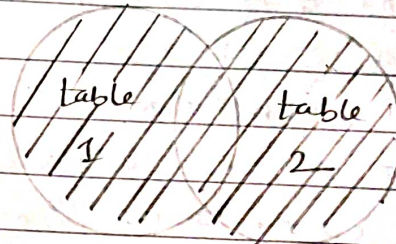 table
1
table
2